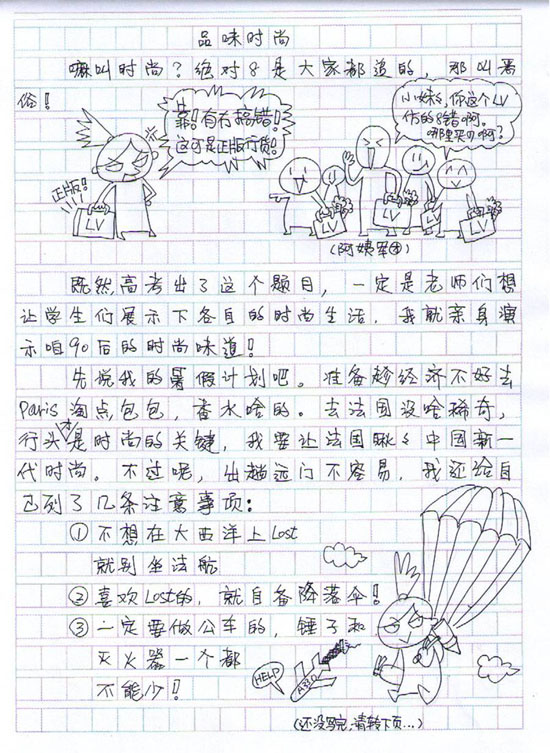 品味时尚
嘛叫时尚？绝对8是大家都追的，那叫恶
俗！
靠！有冇搞错！
这可是正版行货！
小妹，你这个LV
仿的8错啊。
哪里买的啊？
正版！
LV
LV
LV
LV
(阿姨军团)
既然高考出了这个题目，一定是老师们想
让学生们展示下各自的时尚生活，我就亲身演
示咱90后的时尚味道！
先说我的暑假计划吧。准备趁经济不好去
Paris淘点包包，香水啥的。去法国没啥稀奇，
行头才是时尚的关键，我要让法国瞅瞅中国新一
代时尚。不过呢，出趟远门不容易，我还给自
己列了几条注意事项：
①不想在大西洋上Lost
就别坐法航
②喜欢Lost的，就自备降落伞！
③一定要做公车的，锤子和
灭火器一个都
不能少！
HELP
A330
(还没写完，请转下页...)